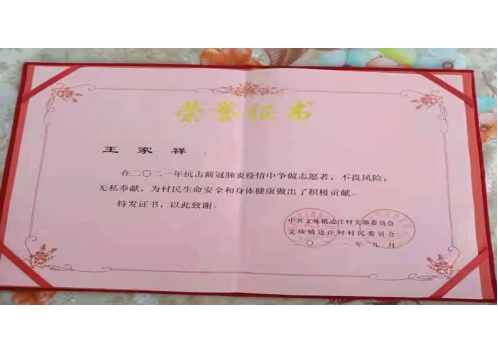 荣誉证书
王家祥
在二〇二一年抗击新冠肺炎疫情中争做志愿者，不畏风险，
无私奉献，为村民生命安全和身体健康做出了积极贡献。
特发证书，以此致谢。
中共文殊镇边庄村支部委员会
文殊镇边庄村村民委员会
二〇二一年九月